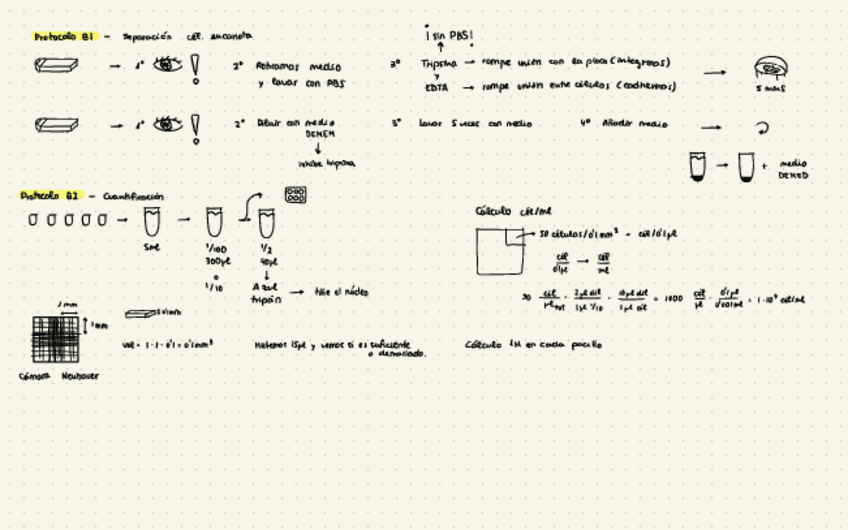 Protocolo B1 - Separación cél. eucariota
1º
2º Retiramos medio
y lavar con PBS
¡sin PBS!
3º Tripsina → rompe unión con la placa (integrinas)
y
EDTA → rompe unión entre células (cadherinas)
5 mins
1º
2º Diluir con medio
DEMEM
↓
inhibe tripsina
3º Lavar 5 veces con medio
4º Añadir medio
+ medio
DEMED
Protocolo B2 - Cuantificación
5ml
1/100
300µl
o
1/10
1/2
40µl
↓
Azul
tripán → tiñe el núcleo
Cálculo cél/ml
50 células/0'1mm³ = cél/0'1µl
cél/0'1µl → cél/ml
1 mm
1 mm
0'1mm
vol = 1·1·0'1 = 0'1mm³
Cámara Neubauer
Metemos 15µl y vemos si es suficiente
o demasiado.
Cálculo 1M en cada pocillo